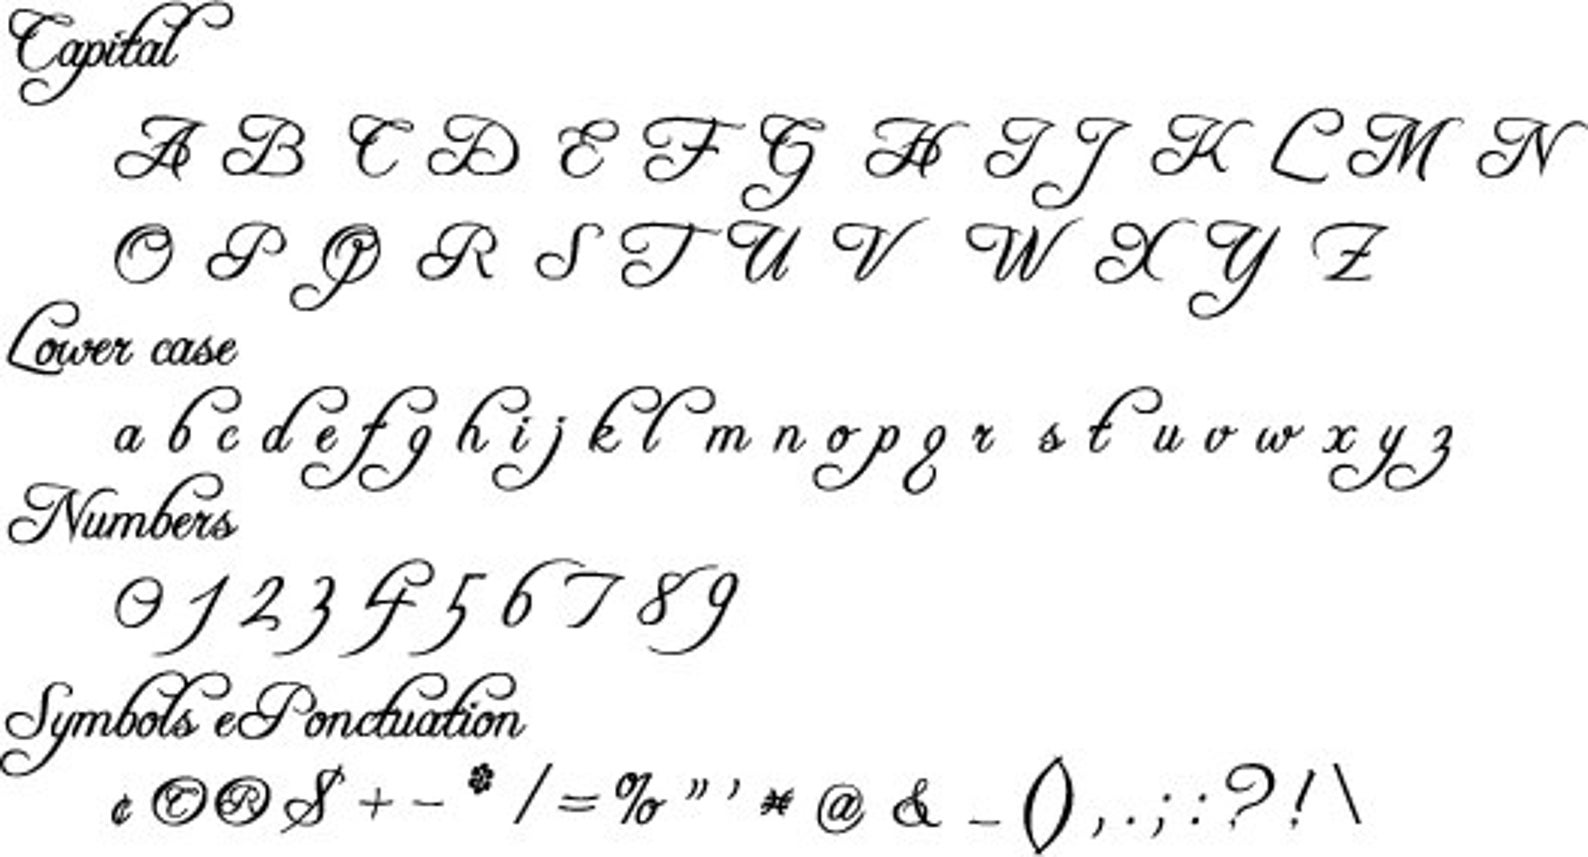 Capital
A B C D E F G H I J K L M N
O P Q R S T U V W X Y Z
Lower case
a b c d e f g h i j k l m n o p q r s t u v w x y z
Numbers
0 1 2 3 4 5 6 7 8 9
Symbols e Ponctuation
¢ © ® $ + - * / = % " ' # @ & _ ( ) , . ; : ? ! \